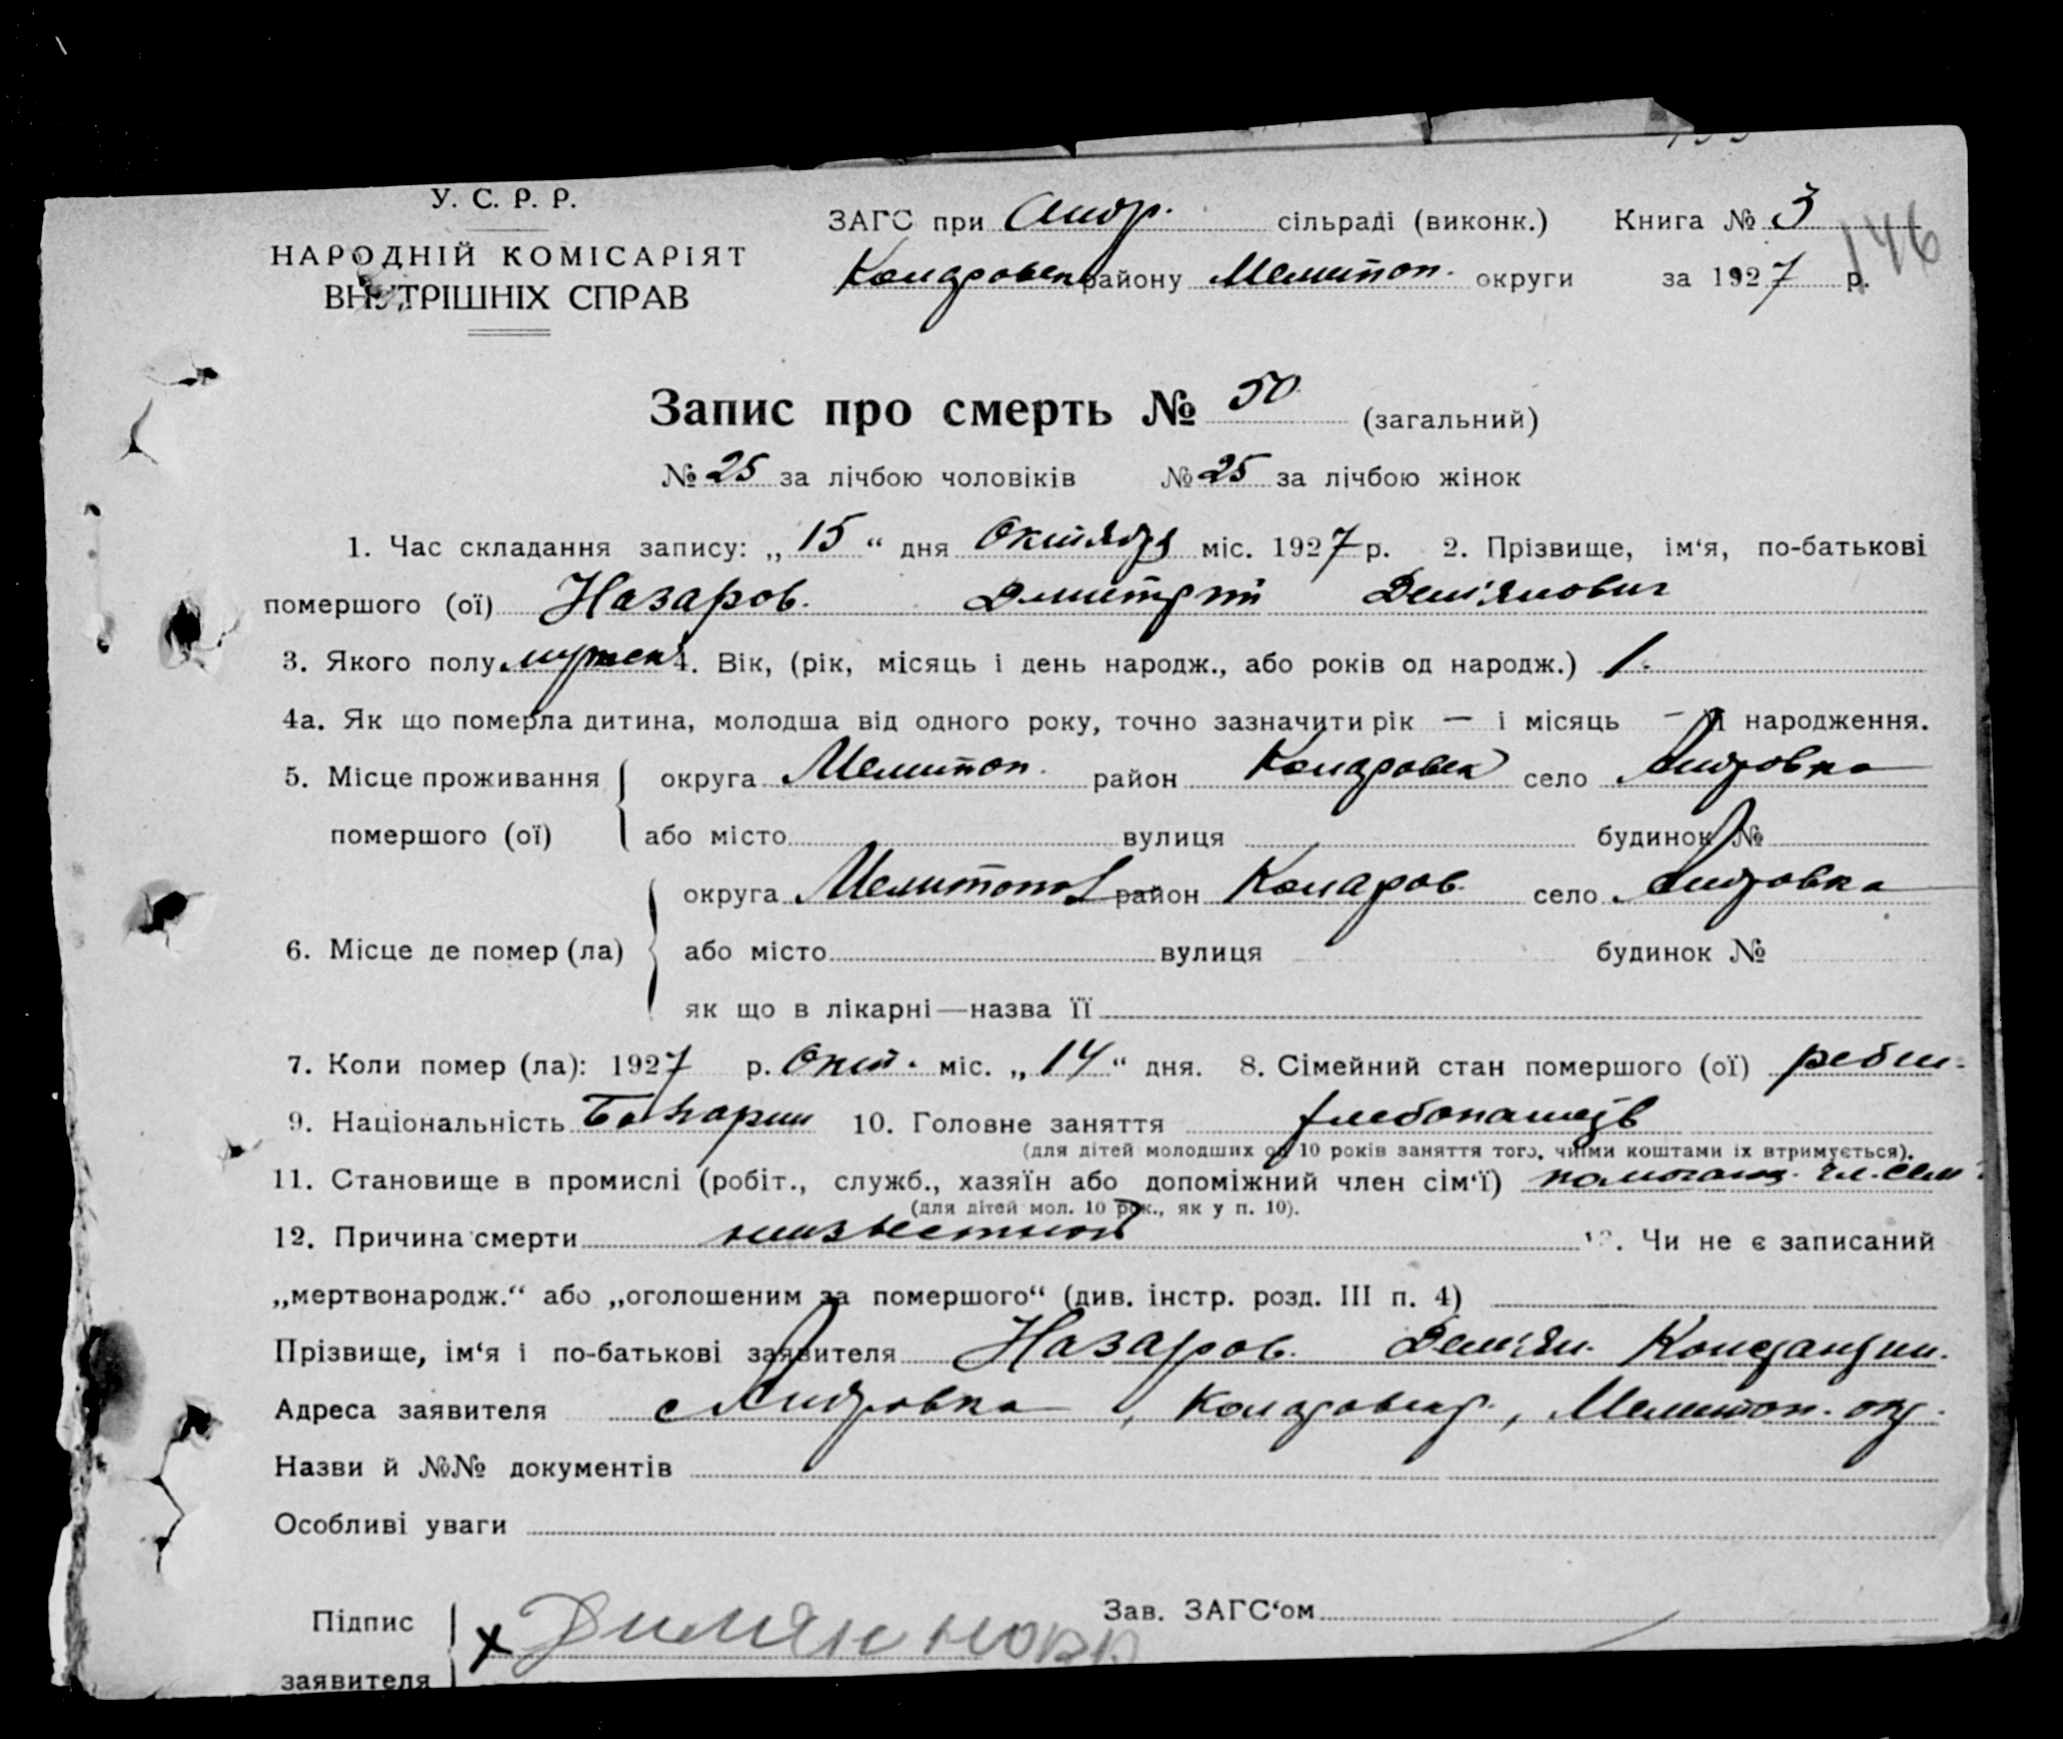 У. С. Р. Р.
НАРОДНІЙ КОМІСАРІЯТ
ВНУТРІШНІХ СПРАВ
ЗАГС при Андр. сільраді (виконк.) Книга № 3
146
району Мелитоп. округи за 1927 р.
Запис про смерть № 50 (загальний)
№ 25 за лічбою чоловіків № 25 за лічбою жінок
1. Час складання запису: „15“ дня Октября міс. 1927 р. 2. Прізвище, ім‘я, по-батькові
помершого (ої) Назаров. Дмитрий Дем'янович
3. Якого полу мужск 4. Вік, (рік, місяць і день народж., або років од народж.) 1.
4а. Як що померла дитина, молодша від одного року, точно зазначити рік — і місяць — її народження.
5. Місце проживання округа Мелитоп. район село Андровка
помершого (ої) або місто вулиця будинок №
округа район село Андровка
6. Місце де помер (ла) або місто вулиця будинок №
як що в лікарні—назва її
7. Коли помер (ла): 1927 р. Окт. міс. „14“ дня. 8. Сімейний стан помершого (ої)
9. Національність Болгарин 10. Головне заняття
(для дітей молодших од 10 років заняття того, чиїми коштами їх втримується).
11. Становище в промислі (робіт., служб., хазяїн або допоміжний член сім‘ї) помогающ. гл. сем.
(для дітей мол. 10 рок., як у п. 10).
12. Причина смерти 13. Чи не є записаний
„мертвонародж.“ або „оголошеним за помершого“ (див. інстр. розд. III п. 4)
Прізвище, ім‘я і по-батькові заявителя Назаров. Дем'ян.
Адреса заявителя с Андровка, Мелитоп. окр.
Назви й №№ документів
Особливі уваги
Підпис Зав. ЗАГС‘ом
х
заявителя